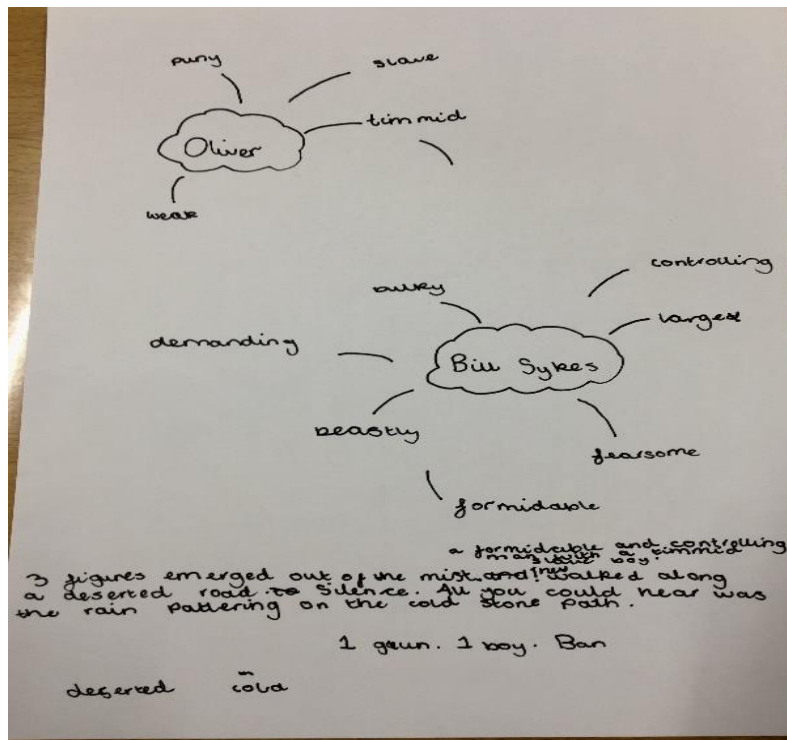 puny
slave
timmid
Oliver
weak
controlling
bulky
largest
demanding
Bill Sykes
beastly
fearsome
formidable
a formidable and controlling
man with a timmid
slave boy.
3 figures emerged out of the mist and! walked along
a deserted road to Silence. All you could hear was
the rain pattering on the cold stone path.
1 gun. 1 boy. Ban
deserted cold